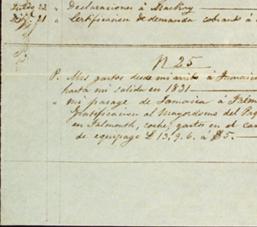 22 " Declaraciones á Mackay
21 " Certificacion de demanda cobrants á
N 25
P. Mis gastos desde mi arribo á Jamaica
hasta mi salida en 1831
" mi pasage de Jamaica á Falm
Gratificacion al Mayordomo del Paq
en Falmouth, coche, gastos en el ca
de equipage £ 13,,9,,6. á $5.